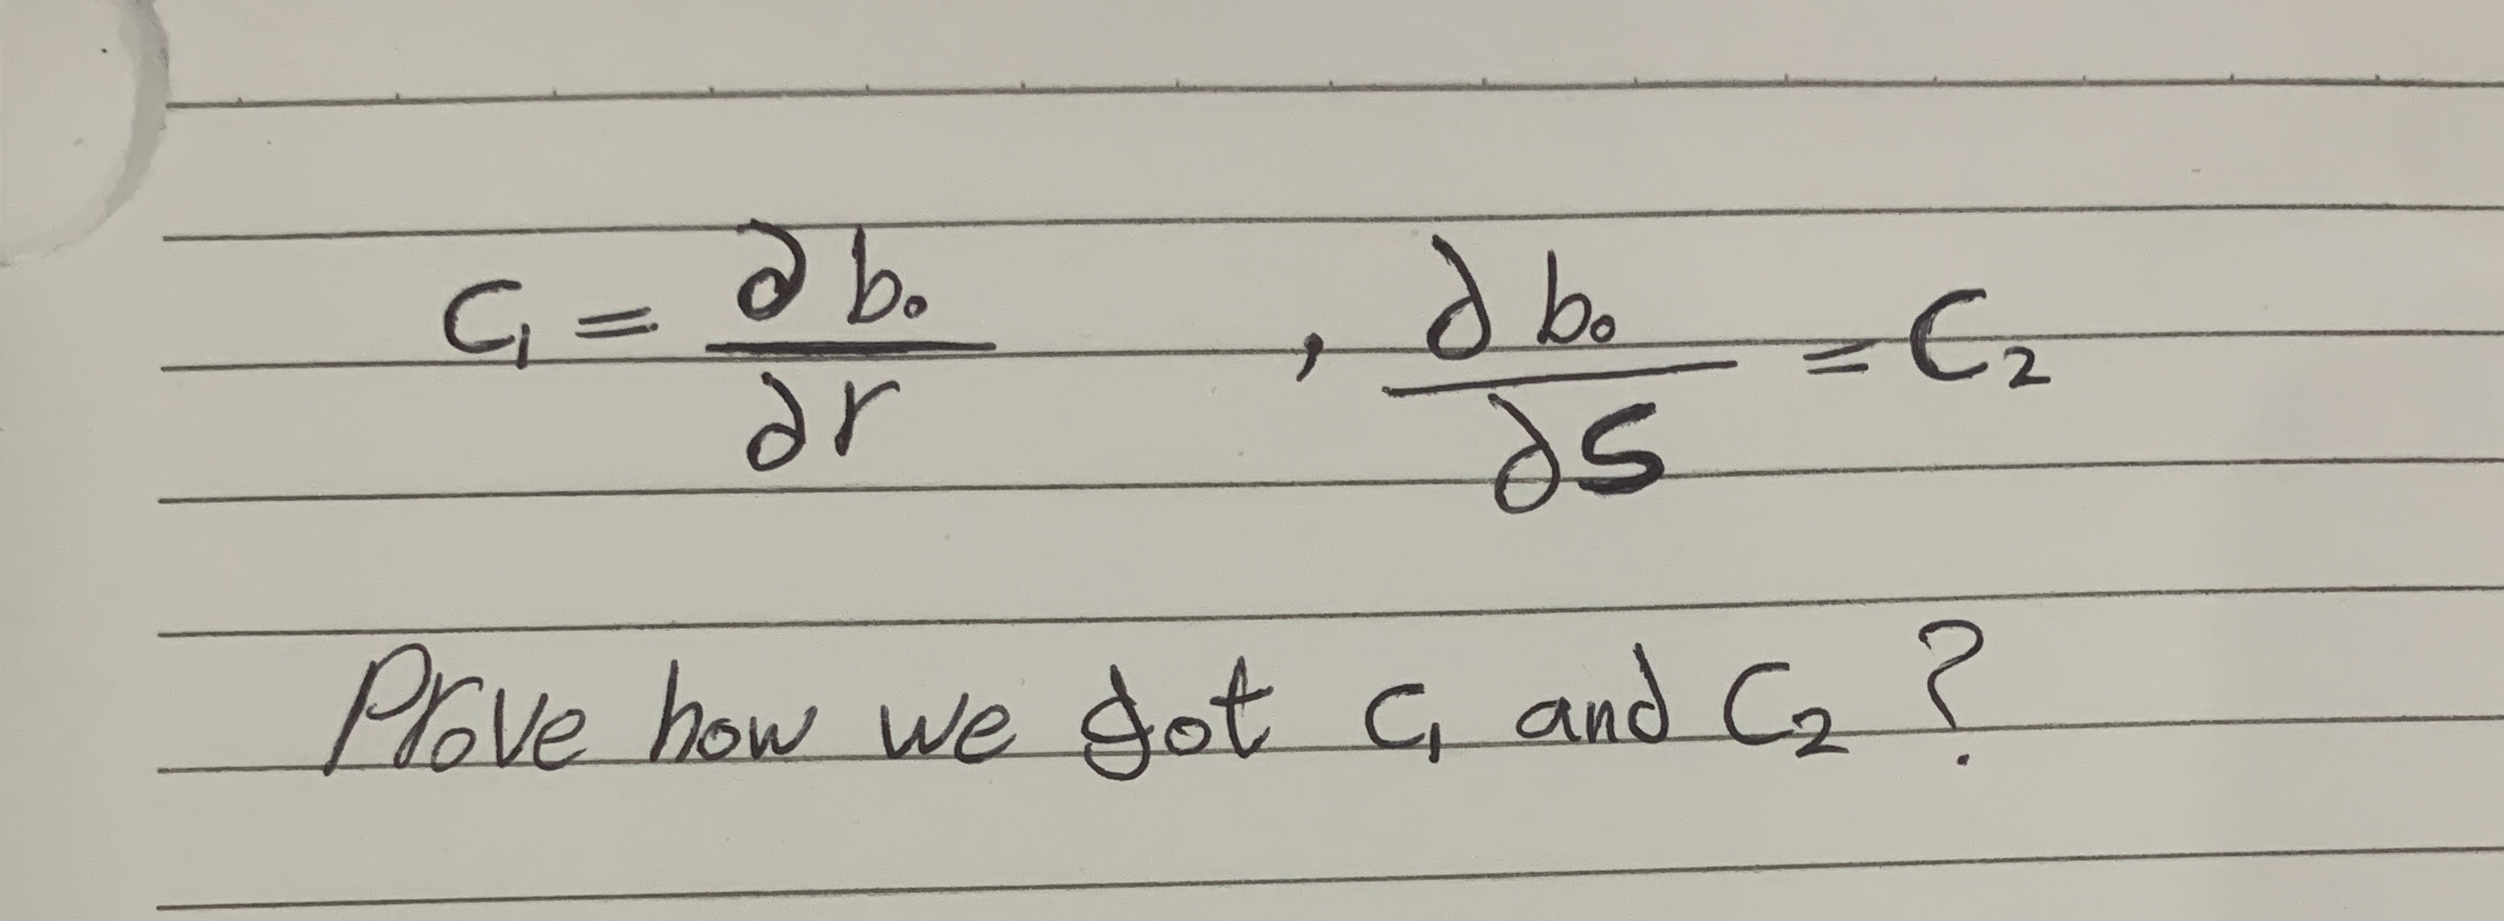 C₁ = ∂b₀/∂r , ∂b₀/∂s = C₂
Prove how we got C₁ and C₂ ?